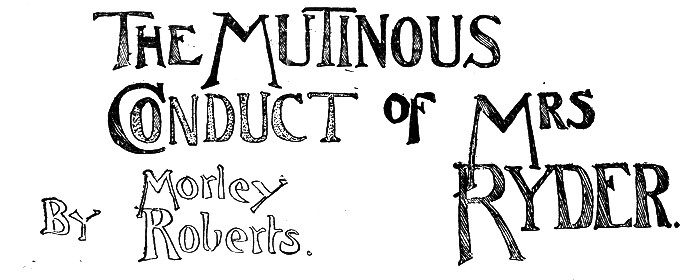 THE MUTINOUS
CONDUCT OF MRS
RYDER.
By Morley
Roberts.